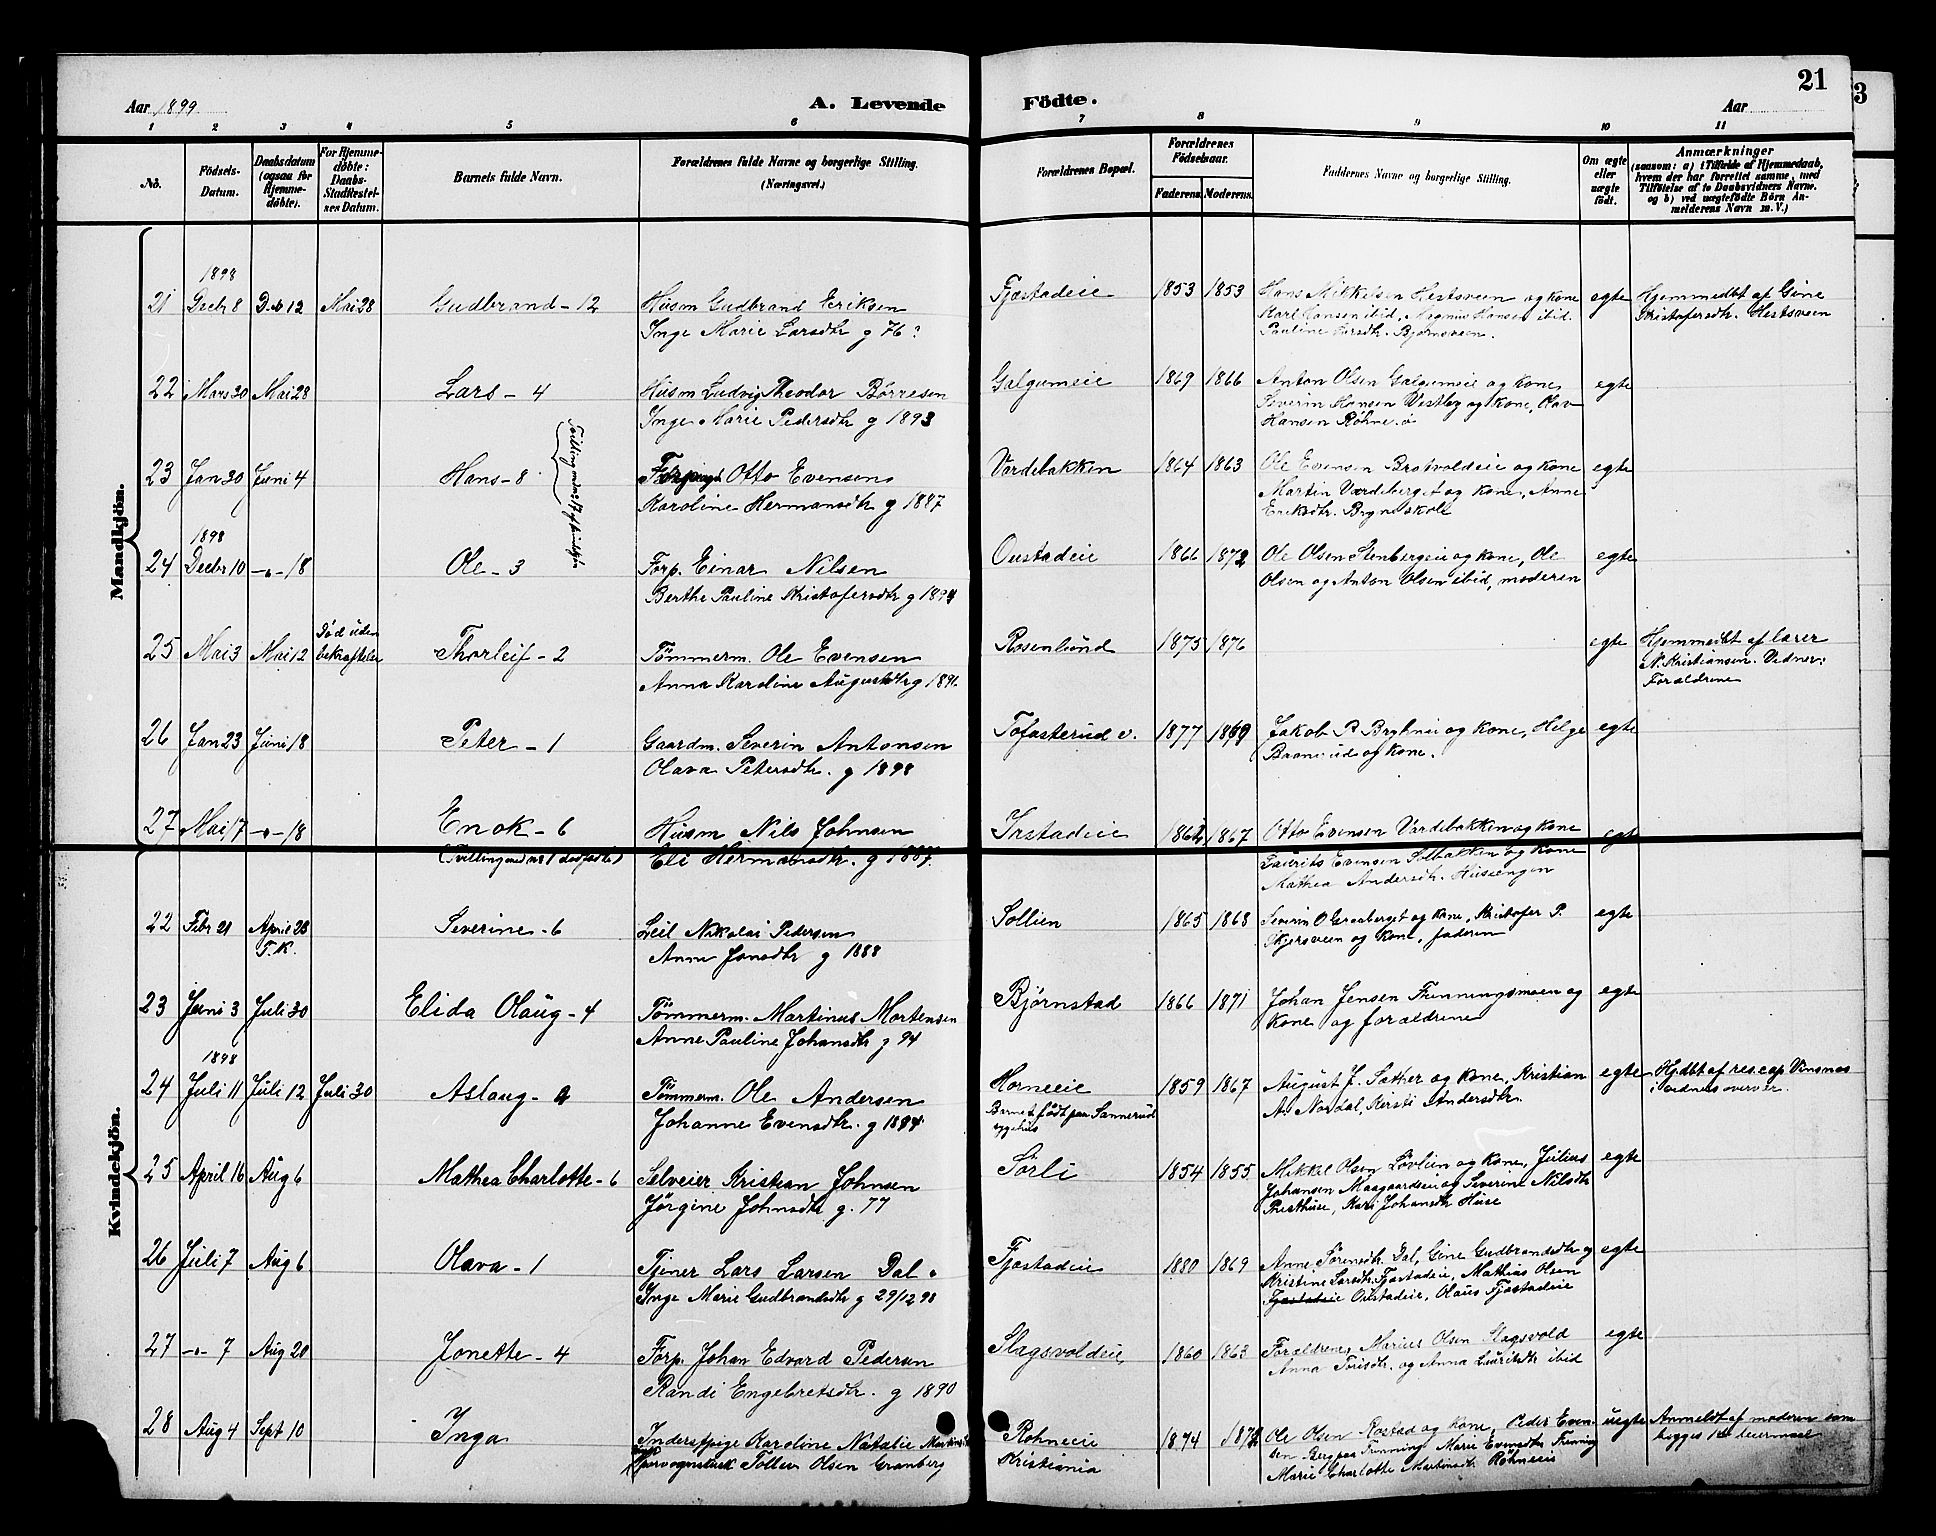 Aar 1899
A. Levende
Födte.
Aar
21
3
1 2 3 4 5 6 7 8 9 10 11
No.
Födsels-
Datum.
Daabsdatum
(ogsaa for
Hjemme-
döbte).
For Hjemme-
döbte:
Daabs-
Stadfæstel-
ses Datum.
Barnets fulde Navn.
Forældrenes fulde Navne og borgerlige Stilling.
(Næringsvei.)
Forældrenes Bopæl.
Forældrenes
Födselsaar.
Faderens. Moderens.
Faddernes Navne og borgerlige Stilling.
Om ægte
eller
uægte
födt.
Anmærkninger
(saasom: a) i Tilfælde af Hjemmedaab,
hvem der har forrettet samme, med
Tilföielse af to Daabsvidners Navne.
og b) ved uægtefödte Börn An-
melderens Navn m. V.)
Mandkjön.
1898
21 Decbr 8 Deb 12 Mai 28 Gudbrand - 12 Husm Gudbrand Eriksen
Inge Marie Larsdtr g 76:
Fjæstadeie 1853 1853 Hans Mikkelsen Hestsveen og kone
Karl Hansen ibid, Magnus Hansen ibid.
Pauline Larsdtr. Bjørnsveen.
egte Hjemmedbt af Gine
Kristofersdtr. Hestsveen
22 Mars 30 Mai 28 Lars - 4 Husm Ludvig Theodor Børresen
Inge Marie Pedersdtr g 1893
Galgumeie 1869 1866 Anton Olsen Galgumeie og kone,
Severin Hansen Vestby og kone, Olav
Hansen Røhne. ø
egte
23 Jan 30 Juni 4 Hans - 8 Otto Evensen
Karoline Hermansdtr g 1887
Vardebakken 1864 1863 Ole Evensen Brotvoldeie og kone
Martin Vardeberget og kone, Anne
Eriksdtr. Bryneskole
egte
1898
24 Decbr 10 -„- 18 Ole - 3 Forp. Einar Nilsen
Berthe Pauline Kristofersdtr g 1894
Oustadeie 1866 1872 Ole Olsen Stenbergeie og kone, Ole
Olsen og Anton Olsen ibid, moderen
egte
25 Mai 3 Mai 12 Død uden
bekræftelse
Thorleif - 2 Tömmerm. Ole Evensen
Anna Karoline Augustdtr g 1896
Rosenlund 1875 1876 egte Hjemmedbt af lærer
N. Kristiansen. Vidner:
Forældrene
26 Jan 23 Juni 18 Peter - 1 Gaardm. Severin Antonsen
Olava Petersdtr. g 1898
Tofasterud v. 1877 Jakob P. Bryhnie og kone, Helge
og kone.
egte
27 Mai 17 -„- 18 Enok - 6 Husm Nils Johnsen
(Tvilling med No 1 dødfødte) Eli Hermansdtr. g 1887.
Irstadeie 1862 1867 Otto Evensen Vardebakken og kone
Laurits Evensen Solbakken og kone
Mathea Andersdtr. Husengen
egte
Kvindekjön.
22 Febr 21 April 23
T.K.
Severine - 6 Leil Nikolai Pedersen
Anne Jonsdtr g 1888
Sollien 1865 1868 Severin O Graaberget og kone, Kristofer P.
Skjersveen og kone, faderen
egte
23 Juni 3 Juli 30 Elida Olaug - 4 Tömmerm. Martinus Mortensen
Anne Pauline Johansdtr g 94
Bjørnstad 1866 1871 Johan Jensen Frenningsmoen og
kone og forældrene
egte
1898
24 Juli 11 Juli 12 Juli 30 Aslaug - 9 Tömmerm. Ole Andersen
Johanne Evensdtr. g 1884
Horneeie
Barnet født paa Sannerud
sygehus
1859 1867 August J. Sæther og kone, Kristian
A. Nordal, Kersti Andersdtr.
egte Hjdbt af res. cap Vinsnes
i vidners overvær.
25 April 16 Aug 6 Mathea Charlotte - 6 Selveier Kristian Johnsen
Jörgine Johnsdtr g. 77
Sörli 1854 1855 Mikkel Olsen Lövlien og kone, Julius
Johansen Maagaardseie og Severine Nilsdtr
Presthuse, Kari Johansdtr Huse
egte
26 Juli 7 Aug 6 Olava - 1 Tjener Lars Larsen Dal.
Inge Marie Gudbrandsdtr g 29/12 98
Fjæstadeie 1880 1869 Anne Sörensdtr. Dal, Gine Gudbrandsdtr og
Kristine Larsdtr. Fjæstadeie, Mathias Olsen
Fjæstadeie Oustadeie, Olaus Fjæstadeie
egte
27 -„- 7 Aug 20 Jonette - 4 Forp. Johan Edvard Pedersen
Randi Engebretsdtr. g 1890
Slagsvoldeie, 1860 1863 Forældrene, Marius Olsen Slagsvold
Anna og Anna Lauritsdtr ibid
egte
28 Aug 4 Sept 10 Inga Inderstpige Karoline Natalie
Tollev Olsen Granberg
Røhneeie
Kristiania
1874 1872 Ole Olsen Rostad og kone, Peder Even-
sen Bergpaa Frenning Marie Evensdtr Frenning
Marie Charlotte Martinsdtr. Røhneeie
uegte Anmeldt af moderen som
begges 1ste leiermaal